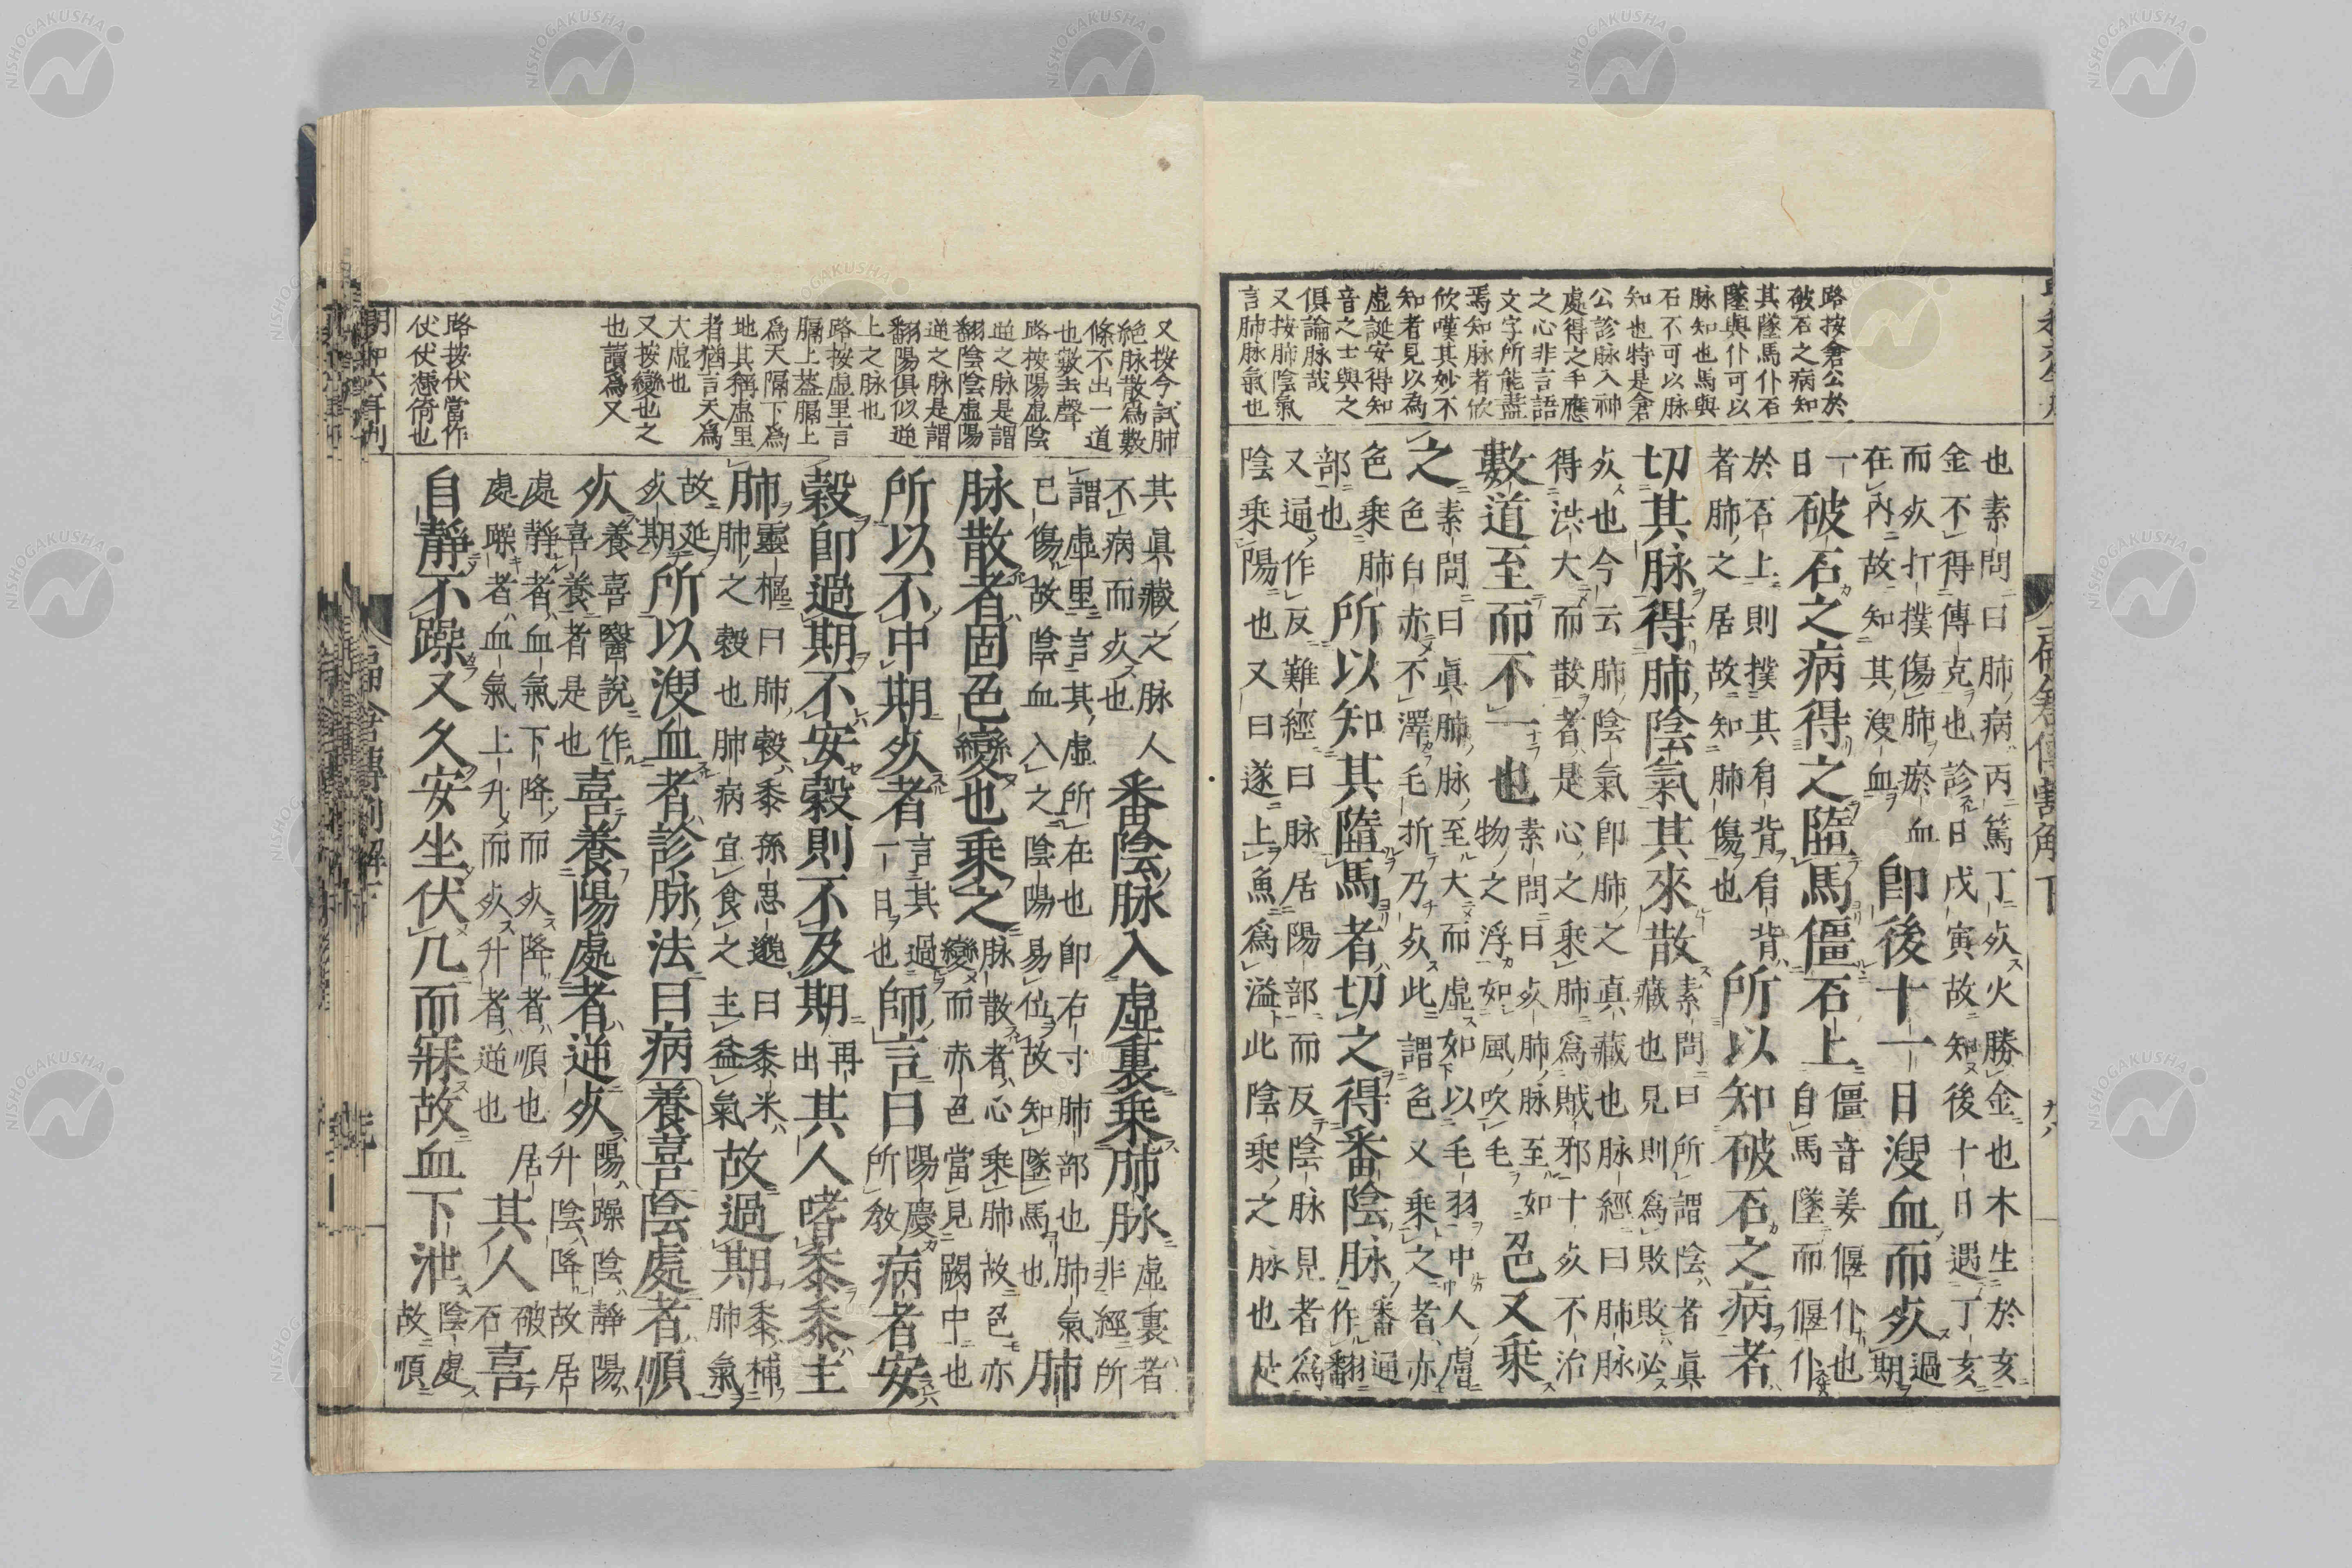 路按倉公於
破石之病知
其墜馬仆石
墜與仆可以
脉知也馬與
石不可以脉
知也特是倉
公診脉入神
處得之手應
之心非言語
文字所能盡
焉知脉者佽
佽嘆其妙不
知者見以為
虛誕安得知
音之士與之
俱論脉哉
又按肺陰氣
言肺脉氣也
也素問曰肺病丙篤丁死火勝金也木生於亥
金不得傳克也診日戊寅故知後十日遇丁亥
而死打撲傷肺瘀血
在內故知其溲血
即後十一日溲血而死
過期
一日
破石之病得之墮馬僵石上
僵音姜偃仆也
自馬墜而偃仆
於石上則撲其肩背肩背
者肺之居故知肺傷也
所以知破石之病者
切其脉得肺陰氣其來散
素問曰所謂陰者眞
藏也見則為敗敗必
死也今云肺陰氣即肺之眞藏也脉經曰肺脉
得洪大而散者是心之乘肺為賊邪十死不治
數道至而不一也
素問曰死肺脉至如
物之浮如風吹毛
色又乘
之
素問曰眞肺脉至大而虛如以毛羽中人膚
色白赤不澤毛折乃死此謂色又乘之者亦
色乘肺
部也
所以知其墮馬者切之得番陰脉
番通
作翻
又逼作反難經曰脉居陽部而反陰脉見者為
陰乘陽也又曰遂上魚為溢此陰乘之脉也是
又按今試肺
絕脉散為數
條不出一道
也數去聲
路按陽虛陰
逆之脉是謂
翻陰陰虛陽
逆之脉是謂
翻陽俱似逆
上之脉也
路按虛里言
膈上葢膈上
為天隔下為
地其稱虛里
者猶言天為
大虛也
又按變也之
也讀為又
路按伏當作
伏伏憑倚也
其眞藏之脉人
不病而死也
番陰脉入虛裏乘肺脉
虛裏者
非經所
謂虛里言其虛所在也即右寸肺部也肺氣
已傷故陰血入之陰陽易位故知墜馬也
肺
脉散者固色變也乘之
脉散者心乘肺故色亦
變而赤色當見闕中也
所以不中期死者
言其過
一日也
師言曰
陽慶
所敘
病者安
穀即過期不安穀則不及期
再出
其人嗜黍黍主
肺
靈樞曰肺穀黍孫思邈曰黍米
肺之穀也肺病宜食之主益氣
故過期
黍補
肺氣
故延
死期
所以溲血者診脉法曰病養喜陰處者順
死
養喜醫說作
喜養者是也
喜養陽處者逆死
陽躁陰靜陽
升陰降故居
處靜者血氣下降而死降者順也居
處躁者血氣上升而死升者逆也
其人
破石
喜
自靜不躁又久安坐伏几而寐故血下泄
陰處
故順
明和六年刊
扁倉傳割解下